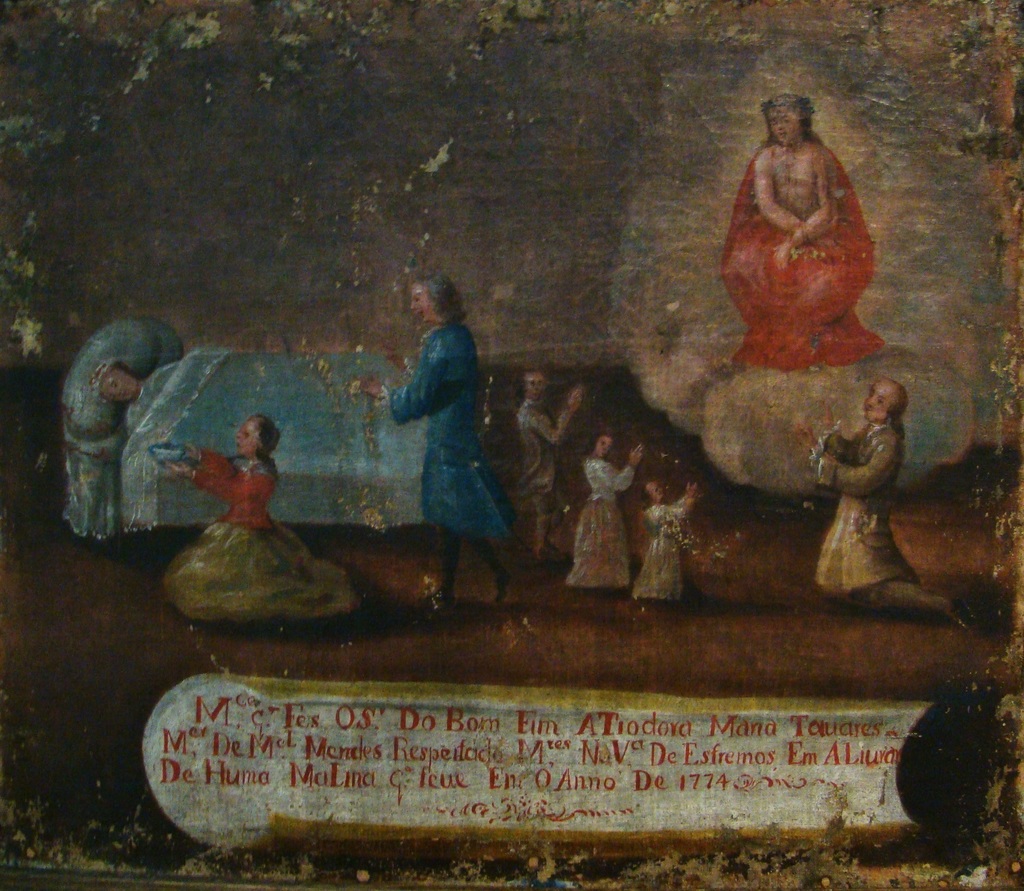 M.ce q.e Fes O S.r Do Bom Fim A Tiodora Maria Tavares
M.er De M.el Mendes Respeitado M.tes N. V.a De Esfremos Em A Liurar
De Huma MaLina q.e teue Em O Anno De 1774